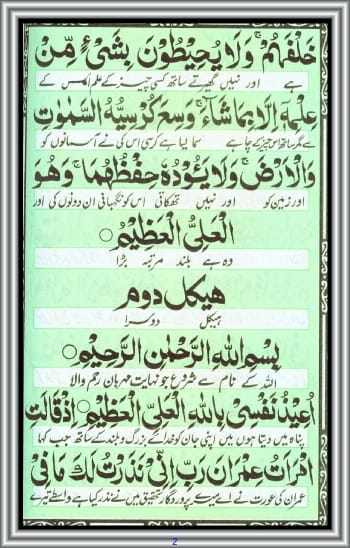 خَلْفَهُمْ ۚ وَلَا يُحِيْطُوْنَ بِشَيْءٍ مِّنْ
ہے اور نہیں گھیرتے ساتھ کسی چیز کے علم اس کے
عِلْمِهٖٓ اِلَّا بِمَا شَآءَ ۚ وَسِعَ كُرْسِيُّهُ السَّمٰوٰتِ
سے مگر ساتھ اس چیز کے چاہے سما لیا ہے کرسی اس کی نے آسمانوں کو
وَالْاَرْضَ ۚ وَلَا يَـُٔوْدُهٗ حِفْظُهُمَا ۚ وَهُوَ
اور زمین کو اور نہیں تھکاتی اس کو نگہبانی ان دونوں کی اور
الْعَلِىُّ الْعَظِيْمُ ○
وہ ہے بلند مرتبہ بڑا
هيكل دوم
ہیکل دوسرا
بِسْمِ اللهِ الرَّحْمٰنِ الرَّحِيْمِ ○
اللہ کے نام سے شروع جو نہایت مہربان رحم والا
اُعِيْذُ نَفْسِيْ بِاللهِ الْعَلِىِّ الْعَظِيْمِ ○ اِذْ قَالَتِ
پناہ میں دیتا ہوں میں اپنی جان کو خدائے بزرگ و بلند کے ساتھ جب کہا
امْرَاَتُ عِمْرَانَ رَبِّ اِنِّيْ نَذَرْتُ لَكَ مَا فِيْ
عمران کی عورت نے اے میرے پروردگار تحقیق میں نے نذر کیا ہے واسطے تیرے
2